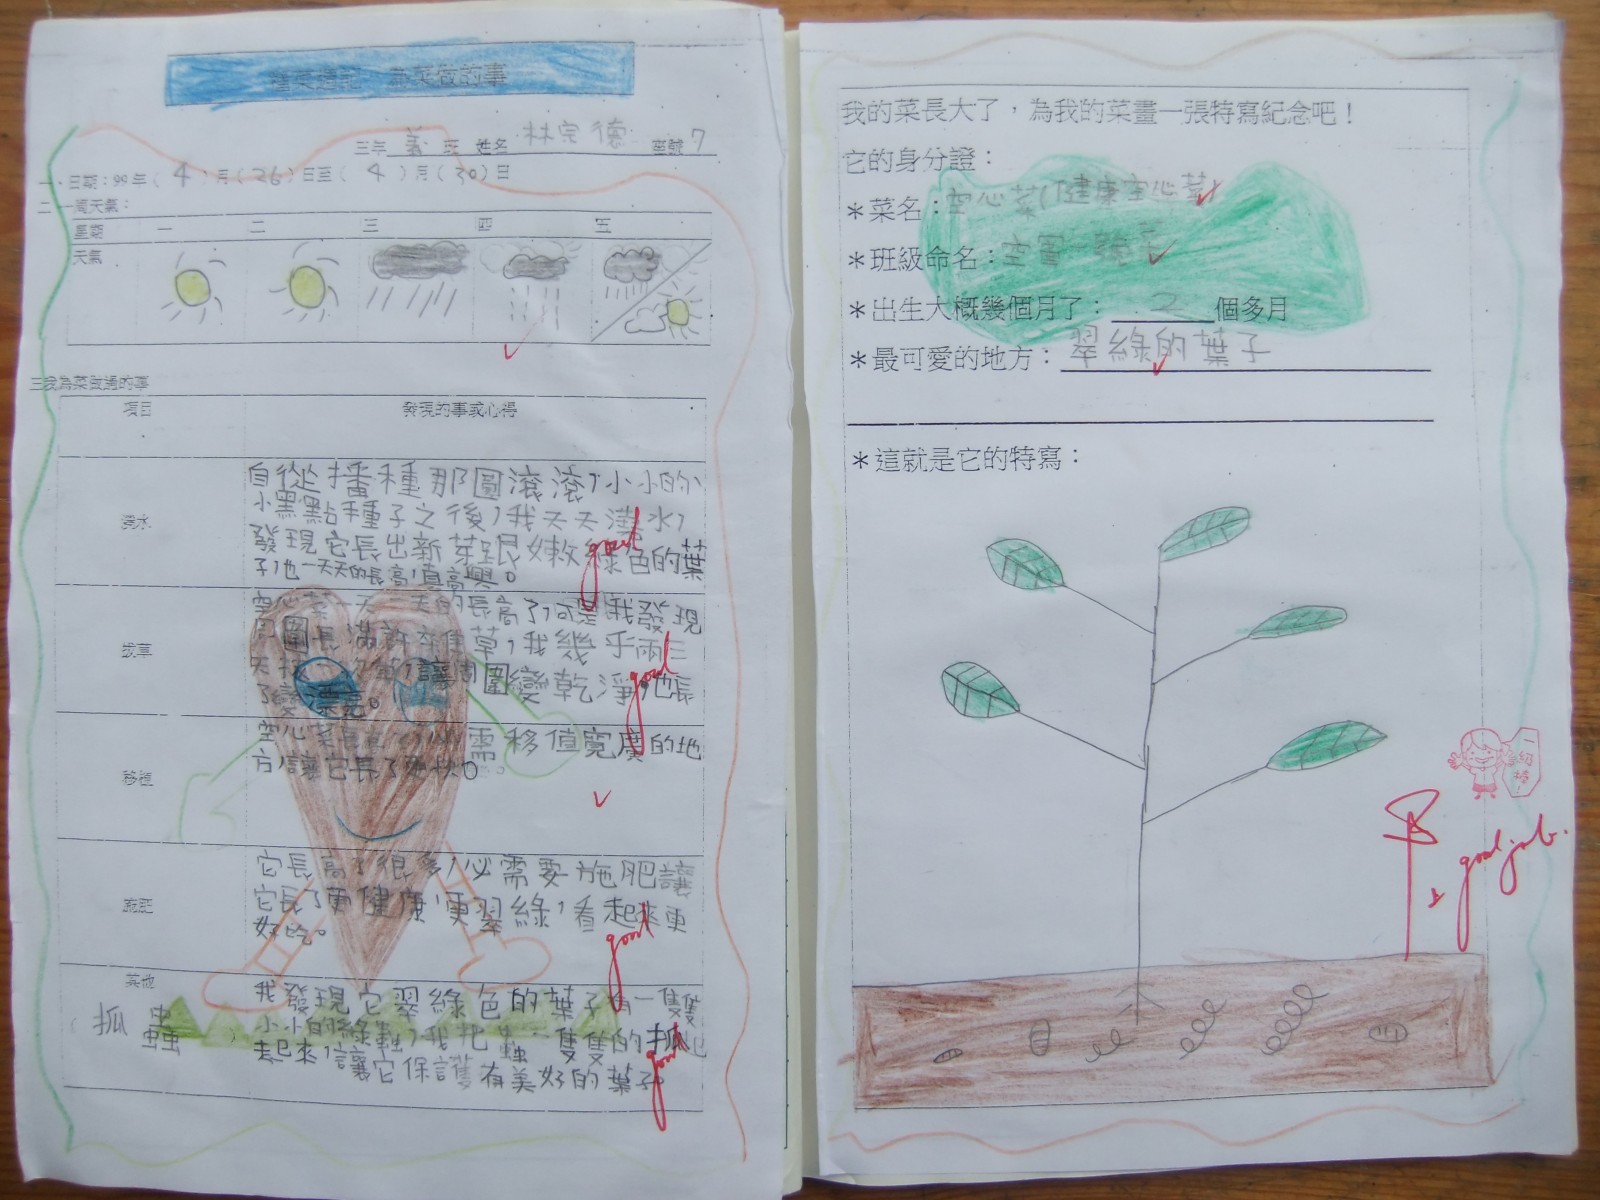 種菜週記 為菜做的事
三年 義 班 姓名 林宗德 座號 7
一、日期：99年（4）月（26）日至（4）月（30）日
二、一周天氣：
星期 一 二 三 四 五
天氣
三我為菜做過的事
項目 發現的事或心得
澆水
自從播種那圓滾滾,小小的小
小黑點種子之後,我天天澆水,
發現它長出新芽跟嫩綠色的葉
子,也一天天的長高,真高興。
good
拔草
空心菜一天一天的長高了,可是我發現
周圍長滿許多雜草,我幾乎兩三
天 讓周圍變乾淨,也長
了變漂亮。
good
移植
空心菜 需移值寬廣的地
方,讓它長了更快。
施肥
它長高了很多,必需要施肥讓
它長了更健康,更翠綠,看起來更
好吃。
good
其他
（抓蟲）
我發現它翠綠色的葉子有一隻隻
小小的綠蟲,我把蟲一隻隻的抓
起來,讓它保護有美好的葉子。
good
我的菜長大了，為我的菜畫一張特寫紀念吧！
它的身分證：
＊菜名：空心菜(健康空心菜)
＊班級命名：空軍一號
＊出生大概幾個月了：2個多月
＊最可愛的地方：翠綠的葉子
＊這就是它的特寫：
一級棒
good job.